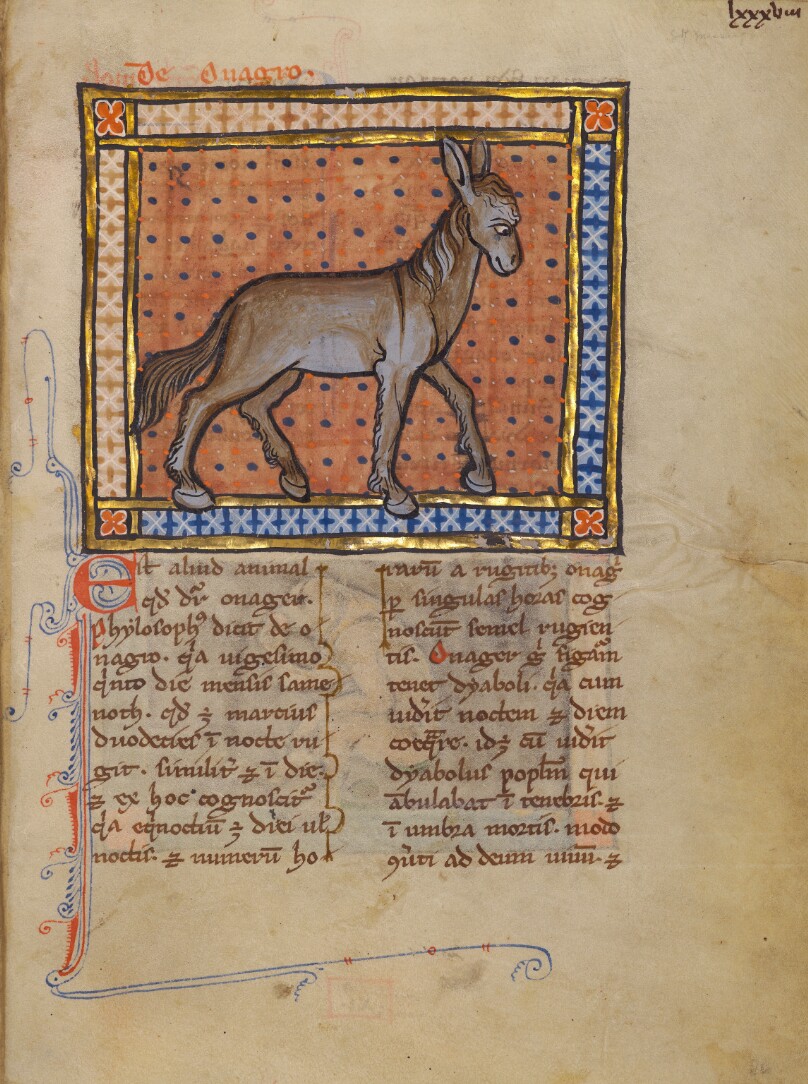 lxxxviii
De Onagro.
Est aliud animal
qd dr onager.
phylosophꝰ dicit de o
nagro. qa uigesimo
qnto die mensis fame
noth. qd ⁊ marcius
duodecies ī nocte ru
git. similit ⁊ ī die.
⁊ ex hoc cognoscit
qa eqnoctiū ⁊ diei ul
noctis. ⁊ numerū ho
rarū a rugitibꝫ onag
ꝑ singulas horas cog
noscūt semel rugien
tis. Onager g figam
tenet dyaboli. qa cum
uidit noctem ⁊ diem
coeqre. idꝫ cū uidit
dyabolus poplm qui
ābulabat ī tenebris. ⁊
ī umbra mortis. modo
ꝯuti ad deum uiuū. ⁊